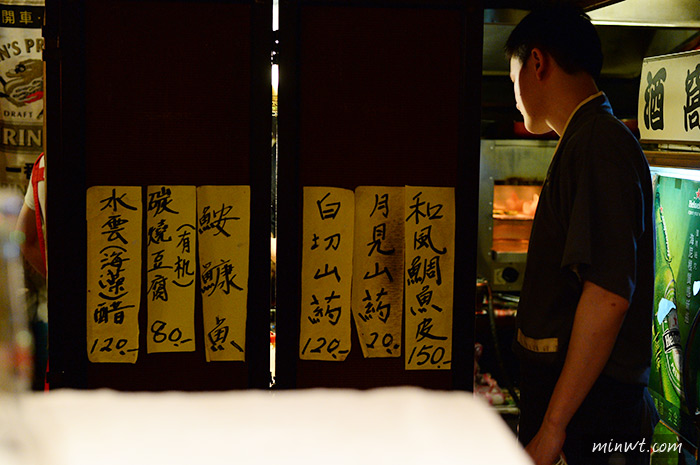 開車
N'S PR
DRAFT
RIN
水雲(海藻)醋
120.-
碳燒豆腐
(有机)
80.-
鮟鱇魚
白切山葯
120.-
月見山葯
20.-
和風鯛魚皮
150.-
酒窩
minwt.com